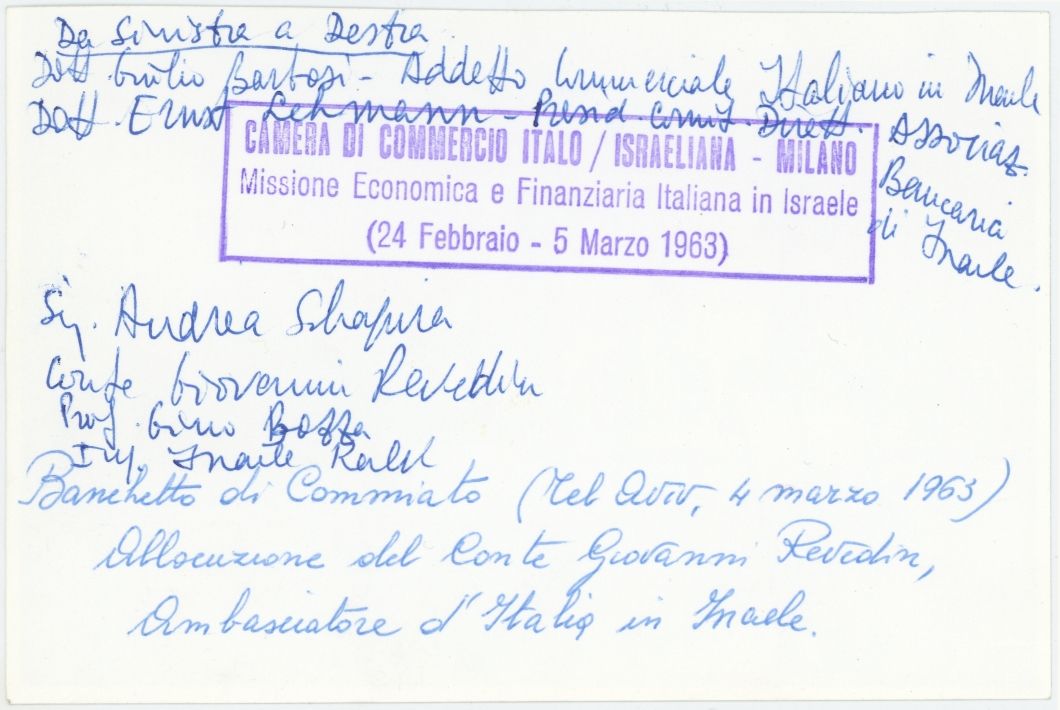 Da Sinistra a Destra
Dott. Giulio Barbosi - Addetto Commerciale Italiano in Israele
Dott. Ernst Lehmann - Presid. Comit. Dirett. Associaz.
Bancaria
di Israele.
CAMERA DI COMMERCIO ITALO / ISRAELIANA - MILANO
Missione Economica e Finanziaria Italiana in Israele
(24 Febbraio - 5 Marzo 1963)
Sig. Andrea Schapira
Conte Giovanni Revedin
Prof. Gino Bozza
Ing. Israele Kalk
Banchetto di Commiato (Tel Aviv, 4 marzo 1963)
Allocuzione del Conte Giovanni Revedin,
Ambasciatore d'Italia in Israele.